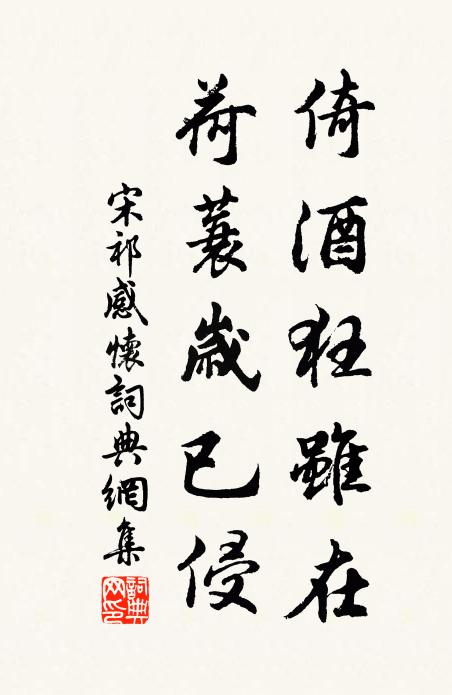 倚酒狂雖在
荷蓑歲已侵
宋祁感懷詞典網集
詞典网印